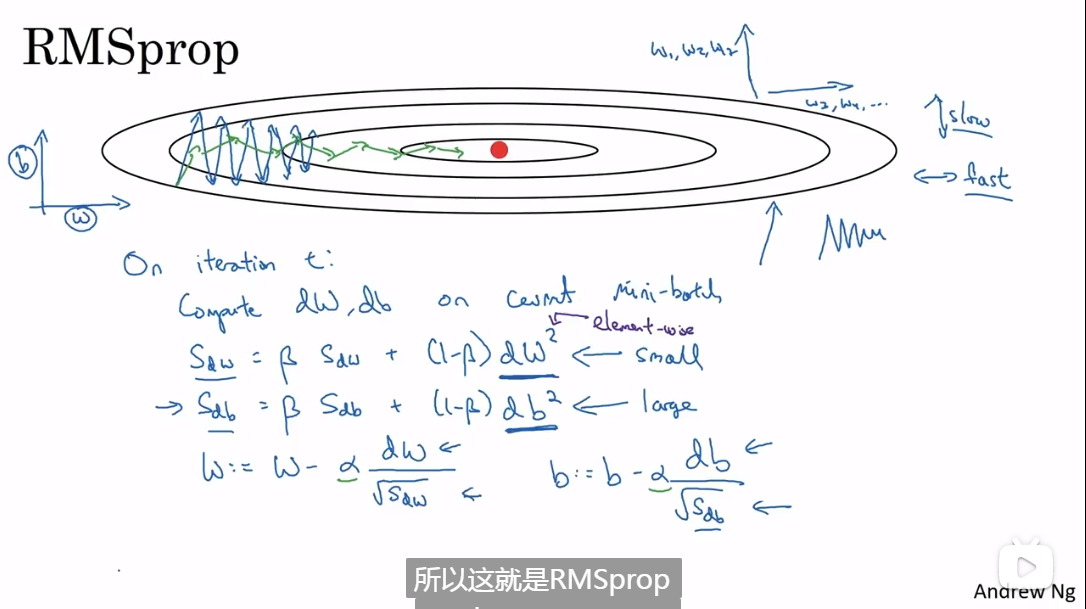 RMSprop
w₁, w₂, w₂
w₃, w₄, ...
↕ slow
↔ fast
b
w
On iteration t:
Compute dW, db on current mini-batch
element-wise
S_dw = β S_dw + (1-β) dW² ← small
→ S_db = β S_db + (1-β) db² ← large
w := w - α dw/√S_dw ←
b := b - α db/√S_db ←
所以这就是RMSprop
Andrew Ng